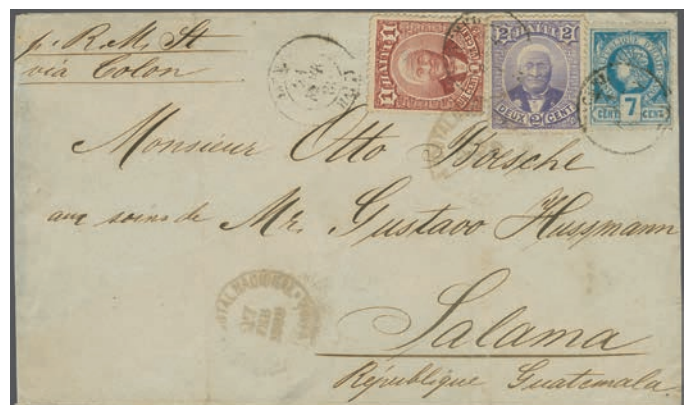 p. R. M. St
via Colon
1 HAITI 1
2 HAITI 2
DEUX 2 CENT
CENT 7 CENT
Monsieur Otto Boesche
aux soins de Mr. Gustavo Hussmann
Salama
République Guatemala